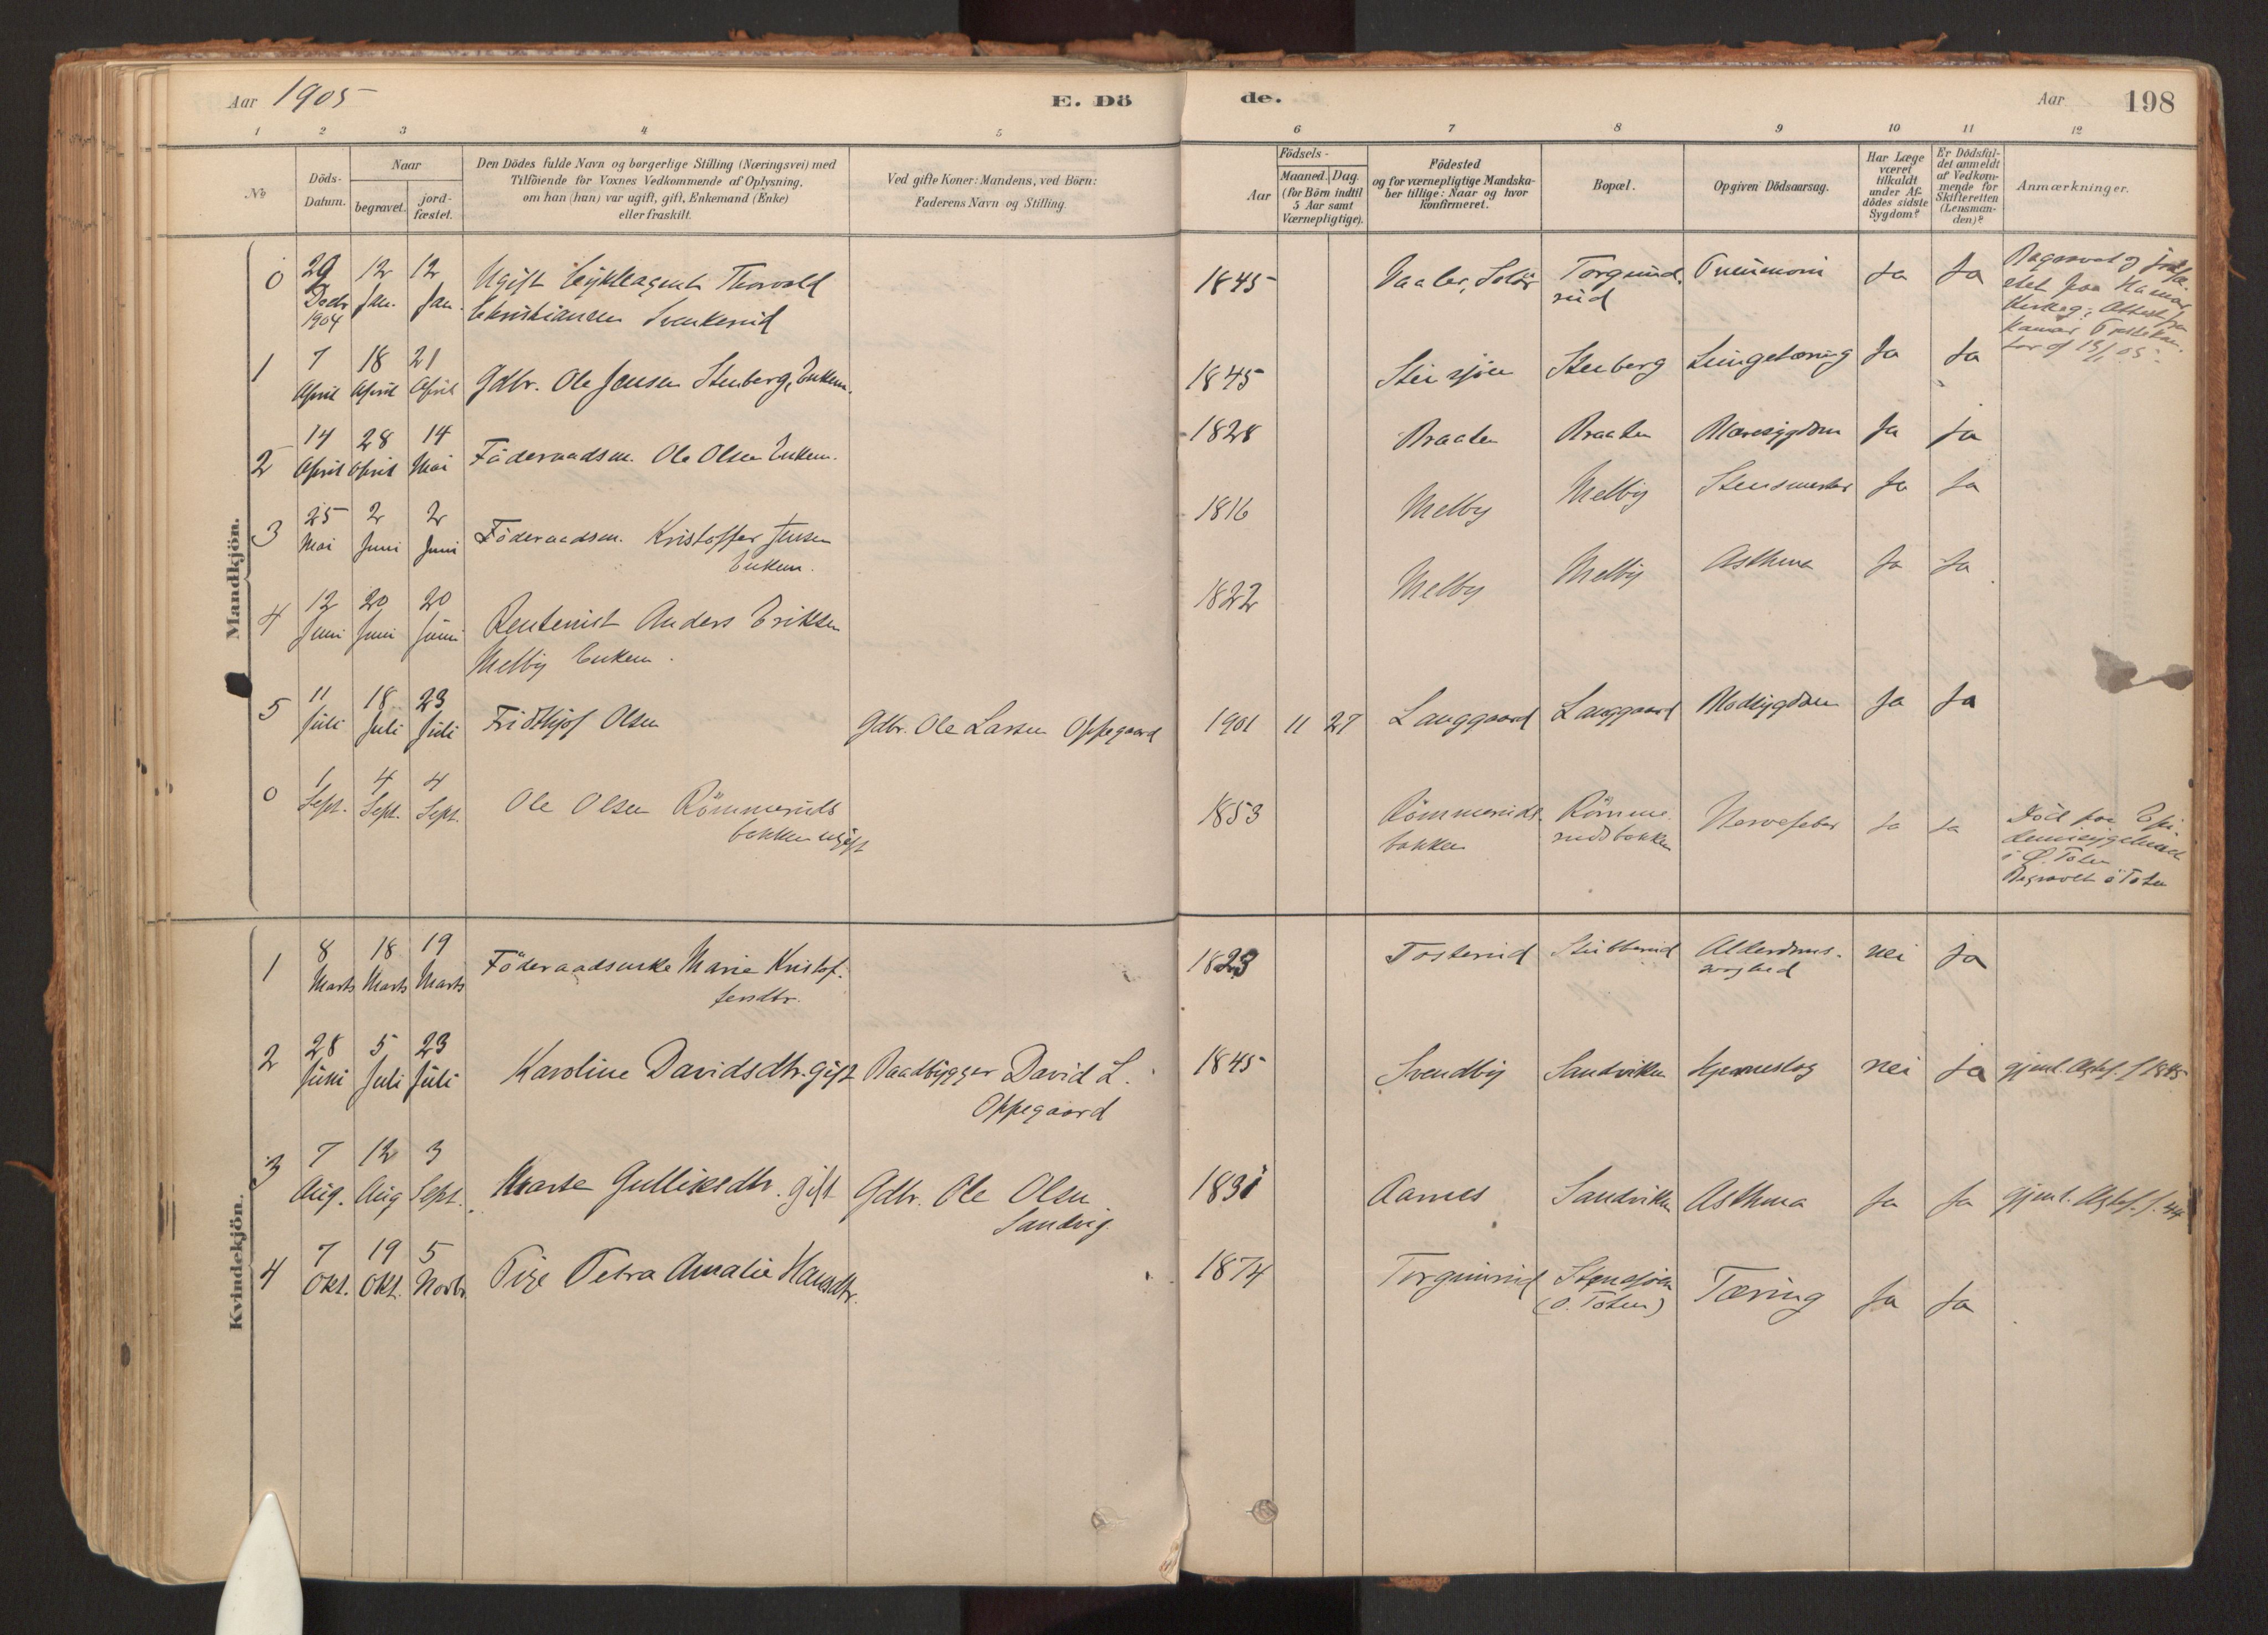 Aar 1905
E. Dö
de.
Aar 198
1 2 3 4 5 6 7 8 9 10 11 12
No
Döds-
Datum.
Naar
begravet.
jord-
fæstet.
Den Dödes fulde Navn og borgerlige Stilling (Næringsvei) med
Tilföiende for Voxnes Vedkommende af Oplysning,
om han (hun) var ugift, gift, Enkemand (Enke)
eller fraskilt.
Ved gifte Koner: Mandens, ved Börn:
Faderens Navn og Stilling.
Födsels-
Aar
Maaned. Dag.
(for Börn indtil
5 Aar samt
Værnepligtige).
Födested
og for værnepligtige Mandska-
ber tillige: Naar og hvor
konfirmeret.
Bopæl.
Opgiven Dödsaarsag.
Har Læge
været
tilkaldt
under Af-
dödes sidste
Sygdom?
Er Dödsfal-
det anmeldt
af Vedkom-
mende for
Skifteretten
(Lensman-
den)?
Anmærkninger.
Mandkjön.
0 29 Decbr 1904 12 Jan. 12 Jan. Ugift Thorvald
Christiansen Svenkerud
1845 Vaaler, Solör Torgunrud Pneumoni Ja Ja
1 7 April 18 April 21 April Gdbr. Ole Jensen Stenberg, Enkem.
1845 Steinsjøen Stenberg Lungetæring Ja Ja
2 14 April 28 April 14 Mai Föderaadsm. Ole Olsen Enkem.
1828 Braaten Braaten Mavesygdom Ja ja
3 25 Mai 2 Juni 2 Juni Föderaadsm. Kristoffer Jensen
Enkem.
1816 Melby Melby Stensmerter Ja Ja
4 12 Juni 20 Juni 20 Juni Rentenist Anders Eriksen
Melby Enkem.
1822 Melby Melby Asthma Ja Ja
5 11 Juli 18 Juli 23 Juli Fridthjof Olsen
Gdbr. Ole Larsen Oppegaard
1901 11 27 Langgaard Langgaard Ja Ja
0 1 Sept. 4 Sept. 4 Sept. Ole Olsen Römmeruds
bakken ugift
1853 Römmeruds-
bakken
Römme-
rudsbakken
Nervefeber Ja Ja
Död paa Epi-
demisygehuset
i Ø. Toten
Begravet i Toten
Kvindekjön.
1 8 Marts 18 Marts 19 Marts Föderaadsenke Marie Kristof-
fersdtr.
1823 Tosterud Stubberud Alderdoms-
svaghed
nei Ja
2 28 Juni 5 Juli 23 Juli Karoline Davidsdtr. gift Baadbygger David L.
Oppegaard
1845 Svendby Sandviken Hjerneslag nei Ja
3 7 Aug. 12 Aug 3 Sept. Marte Gulliksdtr. gift Gdbr. Ole Olsen
Sandvig.
1831 Aarnes Sandviken Asthma Ja Ja
4 7 Okt. 19 Okt. 5 Novbr. Pige Petra Amalie Hansdtr.
1874 Torgunrud Stensjøen
(Ö. Toten)
Tæring Ja Ja